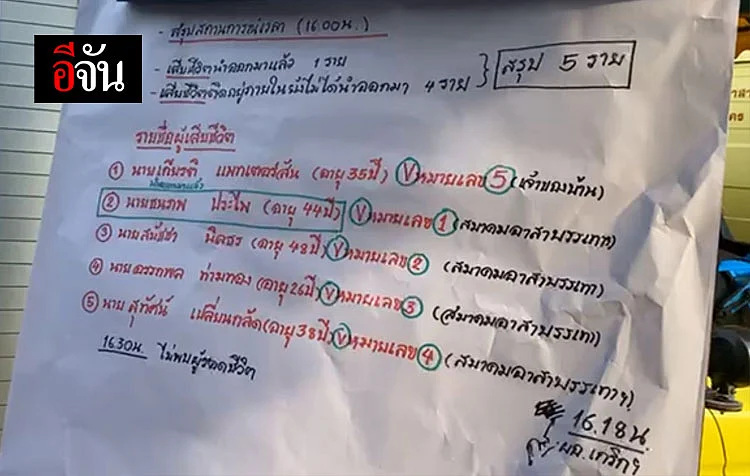 อีจัน
- สรุปสถานการณ์เวลา (16.00น.)
- เสียชีวิตนำออกมาแล้ว 1 ราย
- เสียชีวิตติดอยู่ภายในยังไม่ได้นำออกมา 4 ราย
สรุป 5 ราย
รายชื่อผู้เสียชีวิต
① นายเกียรติ แพทเตอร์สัน (อายุ 35ปี) V หมายเลข 5 (เจ้าของบ้าน)
นำออกมาแล้ว
② นายธนภพ ประไพ (อายุ 44ปี) V หมายเลข 1 (สมาคมอาสาบรรเทาฯ)
③ นายสมัชชา นิลธร (อายุ 48ปี) V หมายเลข 2 (สมาคมอาสาบรรเทา)
④ นายอรรถพล ท่ามทอง (อายุ 26ปี) V หมายเลข 3 (สมาคมอาสาบรรเทา)
⑤ นาย สุทัศน์ เปลี่ยนกลัด (อายุ 38ปี) V หมายเลข 4 (สมาคมอาสาบรรเทาฯ)
16.30น. ไม่พบผู้รอดชีวิต
16.18น.